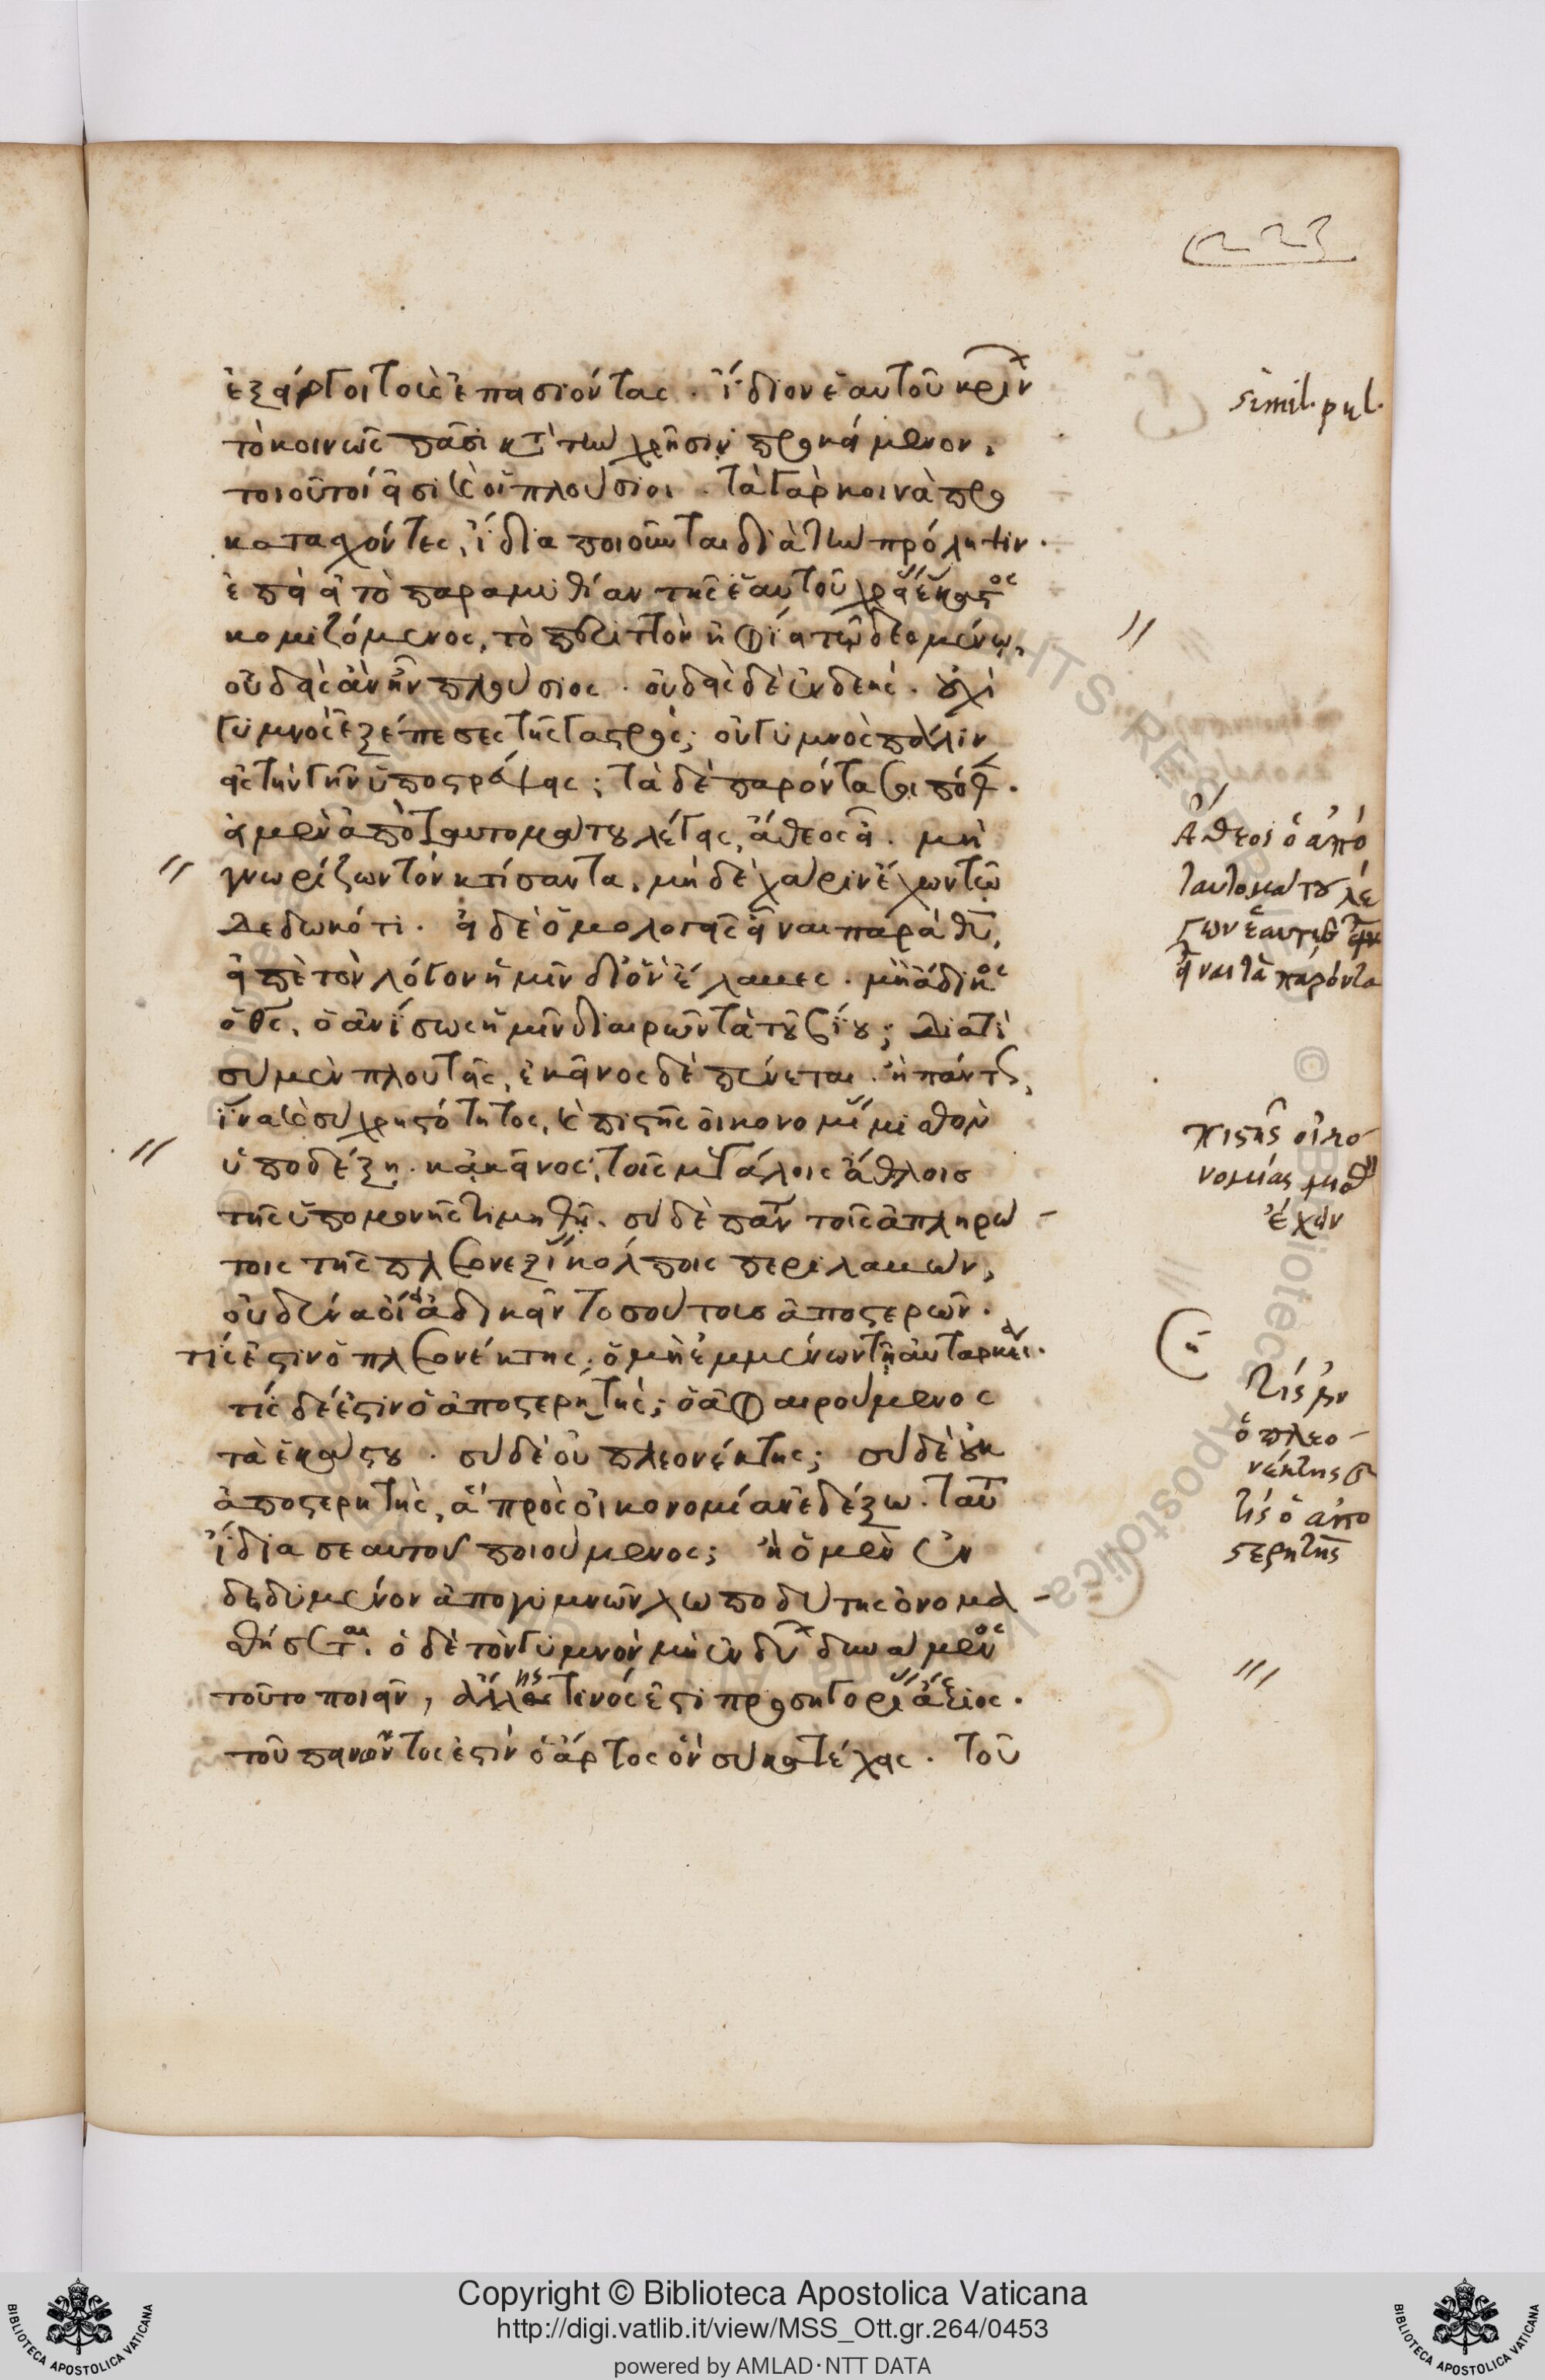 223
ἐξείργοι τοὺς ἐπεισιόντας. ἴδιον ἑαυτοῦ κρίν
τὸ κοινῶς πᾶσι κτ τὴν χρῆσιν προκείμενον,
τοιοῦτοί εἰσι κ οἱ πλούσιοι. τὰ γὰρ κοινὰ προ
κατασχόντες, ἴδια ποιοῦνται διὰ τὴν πρόληψιν.
ἐπεὶ εἰ τὸ παραμυθίαν τῆς ἑαυτοῦ χρεί ἕκαστος
κομιζόμενος, τὸ περιττὸν ἠφίει τῷ δεομένῳ,
οὐδεὶς ἂν ἦν πλούσιος. οὐδεὶς δὲ ἐνδεής. οὐχὶ
γυμνὸς ἐξέπεσες τῆς γαστρός; οὐ γυμνὸς πάλιν
εἰς τὴν γῆν ὑποστρέψεις; τὰ δὲ παρόντα σοι πόθ.
εἰ μὲν ἀπὸ ταυτομάτου λέγεις, ἄθεος εἶ. μὴ
γνωρίζων τὸν κτίσαντα, μὴ δὲ χάριν ἔχων τῷ
δεδωκότι. εἰ δὲ ὁμολογεῖς εἶναι παρὰ θυ,
εἰπὲ τὸν λόγον ἡμῖν δι' ὃν ἔλαβες. μὴ ἄδικος
ὁ θς, ὁ ἀνίσως ἡμῖν διαιρῶν τὰ τοῦ βίου; διατί
σὺ μὲν πλουτεῖς, ἐκεῖνος δὲ πένεται. ἢ πάντς,
ἵνα κ σὺ χρηστότητος, κ πιστῆς οἰκονομί μισθὸν
ὑποδέξῃ. κἀκεῖνος, τοῖς μεγάλοις ἄθλοισ
τῆς ὑπομονῆς τιμηθῇ. σὺ δὲ πάντ τοῖς ἀπληρώ-
τοις τῆς πλεονεξί κόλποις περιλαβών,
οὐδένα οἴει ἀδικεῖν τοσούτουσ ἀποστερῶν.
τίς ἐστιν ὁ πλεονέκτης; ὁ μὴ ἐμμένων τῇ αὐταρκεί.
τίς δέ ἐστιν ὁ ἀποστερητής; ὁ ἀφαιρούμενος
τὰ ἑκάστου. σὺ δὲ οὐ πλεονέκτης; σὺ δὲ οὐκ
ἀποστερητής, ἃ πρὸς οἰκονομίαν ἐδέξω. ταῦτ
ἴδια σεαυτοῦ ποιούμενος; ἢ ὁ μὲν ἐν
δεδυμένον ἀπογυμνῶν λωποδύτης ὀνομα-
σθήσεται. ὁ δὲ τὸν γυμνὸν μὴ ἐνδύ δυνάμενος
τοῦτο ποιεῖν, ἄλλης τινός ἐστι προσηγορί ἄξιος.
τοῦ πεινῶντος ἐστὶν ὁ ἄρτος ὃν σὺ κατέχεις. τοῦ
simil. pul.
Ἄθεοι ὁ ἀπό
ταυτομάτου λέ
γων ἑαυτῷ
εἶναι τὰ παρόντα
πιστῆς οἰκο-
νομίας μισθ
ἔχειν
τίς μν
ὁ πλεο-
νέκτης
τίς ὁ ἀπο
στερητής
Copyright © Biblioteca Apostolica Vaticana
http://digi.vatlib.it/view/MSS_Ott.gr.264/0453
powered by AMLAD·NTT DATA
BIBLIOTECA APOSTOLICA VATICANA
BIBLIOTECA APOSTOLICA VATICANA